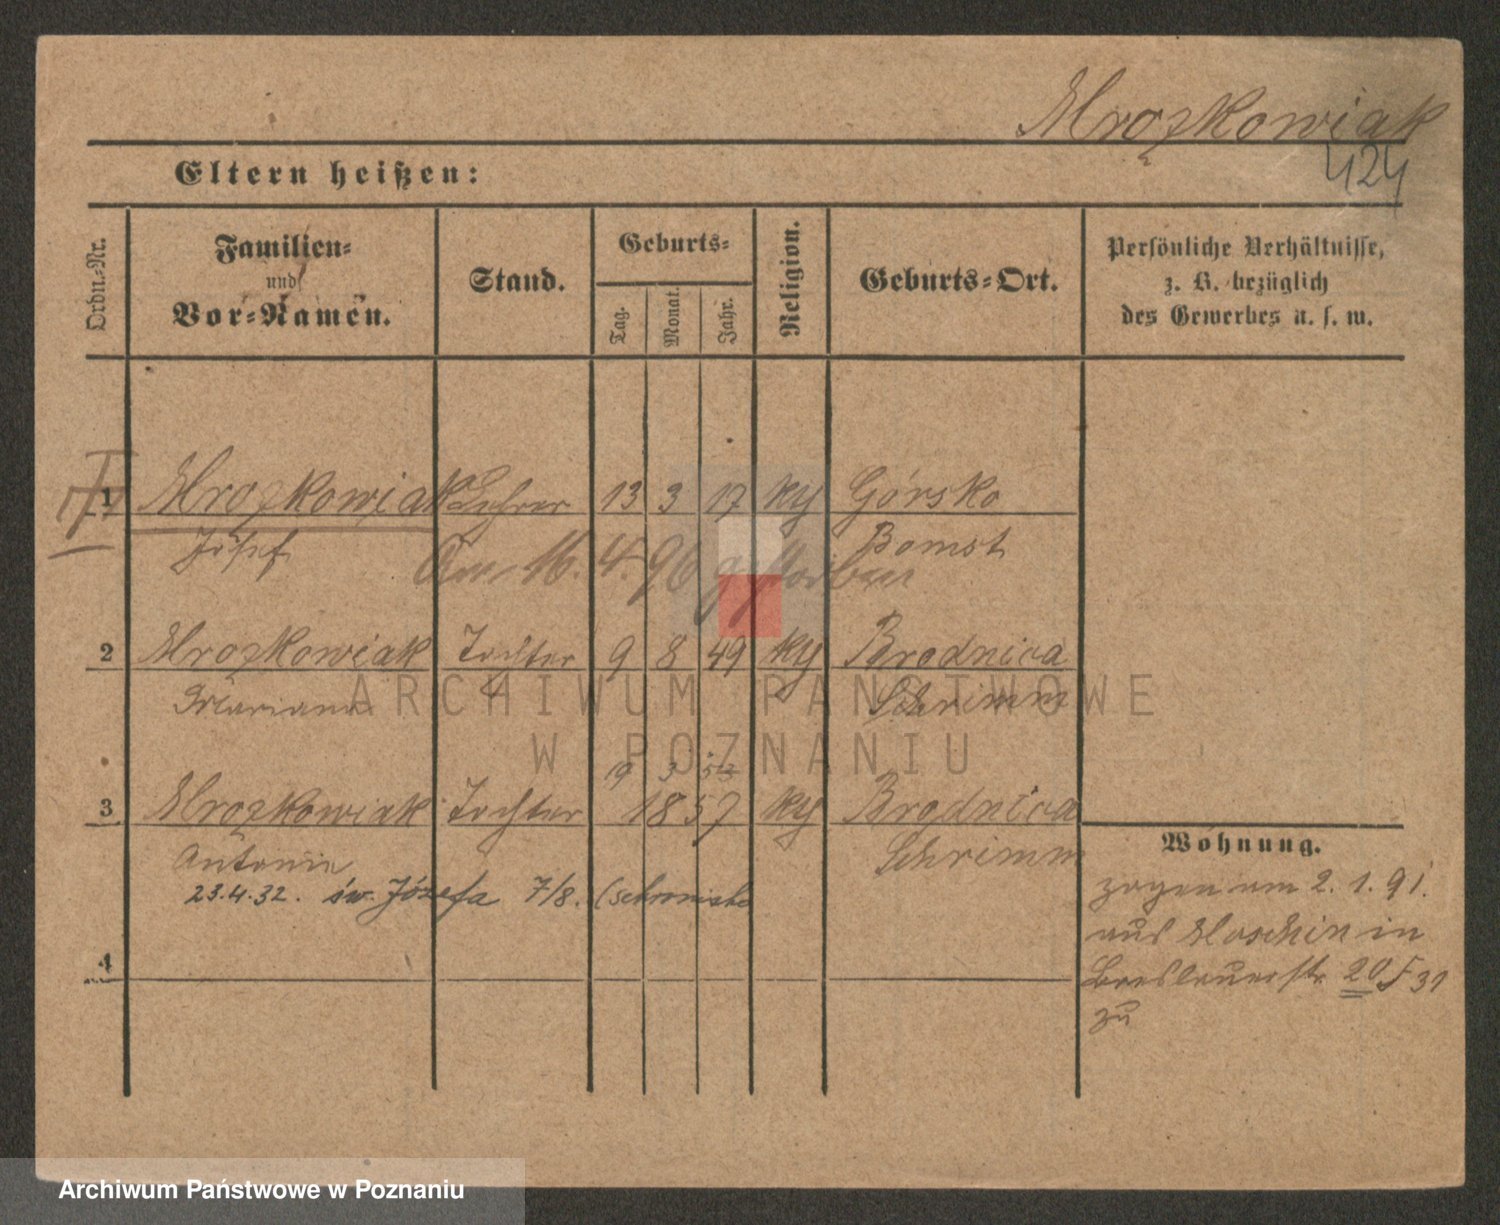 Mrozkowiak
424
Eltern heißen:
Ordn.-Nr.
Familien-
und
Vor-Namen.
Stand.
Geburts-
Tag.
Monat.
Jahr.
Religion.
Geburts-Ort.
Persönliche Verhältnisse,
z. B. bezüglich
des Gewerbes u. s. w.
1 Mrozkowiak Lehrer 13 3 17 kth Górsko
Josef Bomst
Am 16. 4. 96 gestorben
2 Mrozkowiak Tochter 9 8 49 kth Brodnica
Marianna Schrimm
19 3 53
3 Mrozkowiak Tochter 1857 kth Brodnica
Antonie Schrimm
23.4.32. św. Józefa 7/8. (schronisko
4
Wohnung.
zogen am 2. 1. 91.
aus Moschin in
Breslauerstr. 20 31
zu
ARCHIWUM PAŃSTWOWE
W POZNANIU
Archiwum Państwowe w Poznaniu